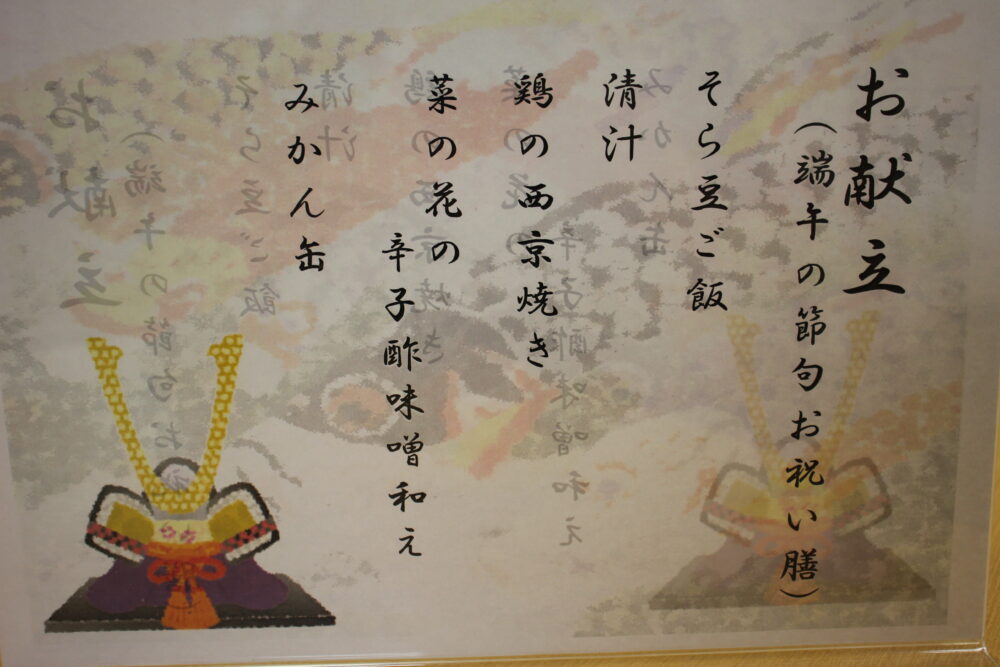 お献立
（端午の節句お祝い膳）
そら豆ご飯
清汁
鶏の西京焼き
菜の花の
辛子酢味噌和え
みかん缶